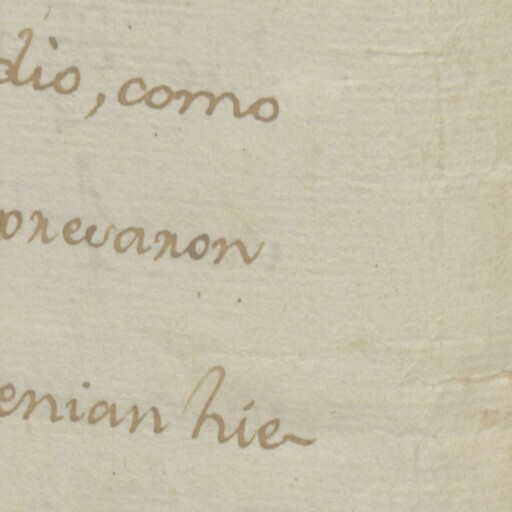 dio, como
prevaron
enian hie-